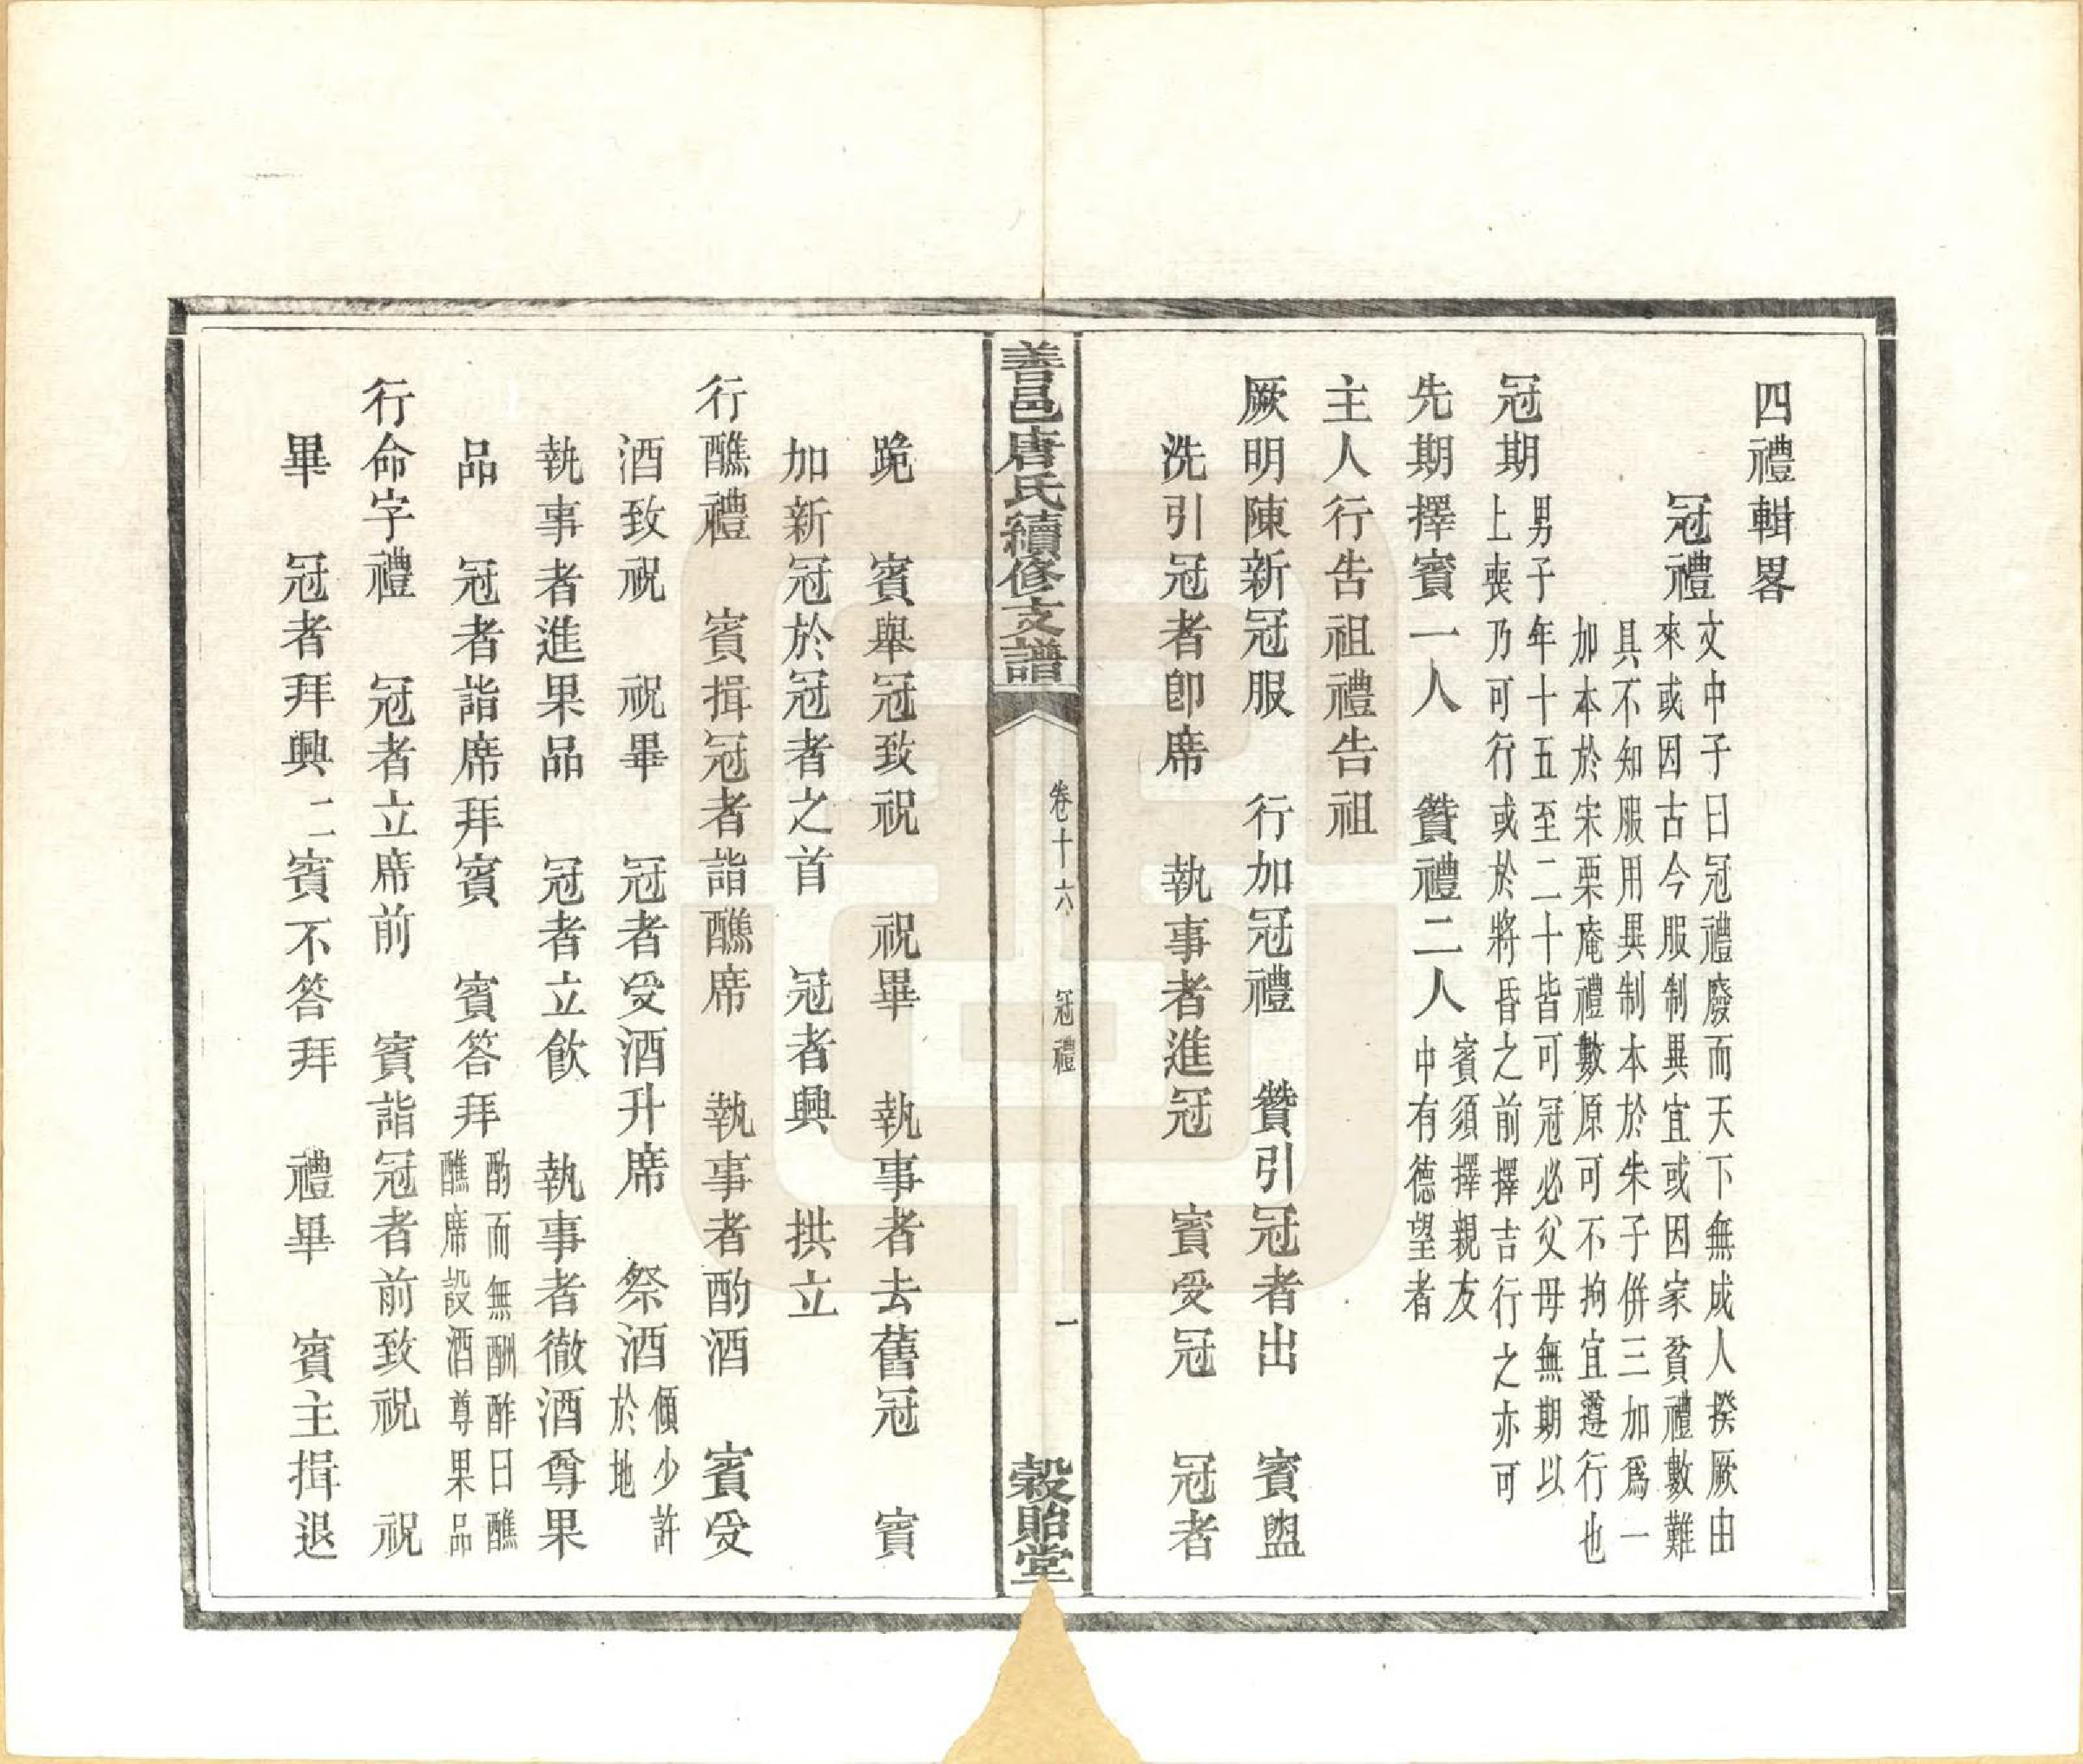 四禮輯畧
冠禮
文中子曰冠禮廢而天下無成人揆厥由
來或因古今服制異宜或因家貧禮數難
具不知服用異制本於朱子併三加爲一
加本於宋栗庵禮數原可不拘宜遵行也
冠期
男子年十五至二十皆可冠必父母無期以
上喪乃可行或於將昏之前擇吉行之亦可
先期擇賓一人　贊禮二人
賓須擇親友
中有德望者
主人行告祖禮告祖
厥明陳新冠服　行加冠禮　贊引冠者出　賓盥
洗引冠者卽席　執事者進冠　賓受冠　冠者
善邑唐氏續修支譜
卷十六　冠禮
一
穀貽堂
跪　賓舉冠致祝　祝畢　執事者去舊冠　賓
加新冠於冠者之首　冠者興　拱立
行醮禮　賓揖冠者詣醮席　執事者酌酒　賓受
酒致祝　祝畢　冠者受酒升席　祭酒
傾少許
於地
執事者進果品　冠者立飲　執事者徹酒尊果
品　冠者詣席拜賓　賓答拜
酌而無酬酢曰醮
醮席設酒尊果品
行命字禮　冠者立席前　賓詣冠者前致祝　祝
畢　冠者拜興二賓不答拜　禮畢　賓主揖退